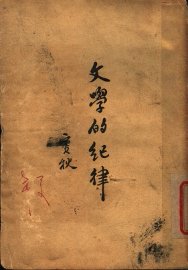 文學的紀律
實秋